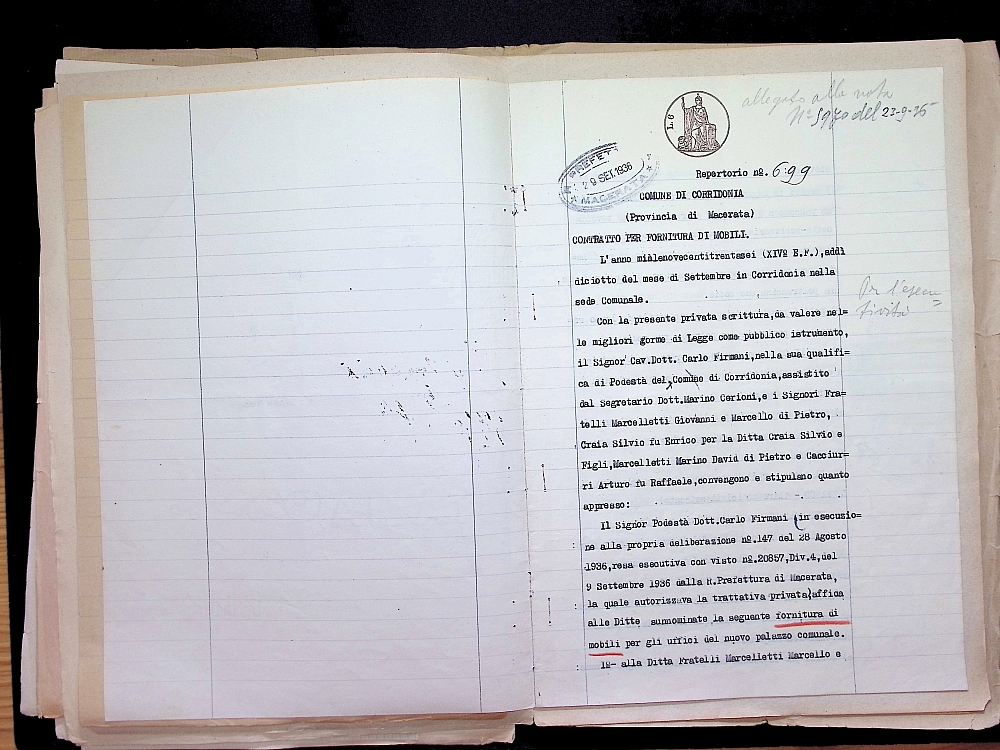 allegato alla nota
Nº 5970 del 23-9-36
L. 6
PREFET
29 SET. 1936
MACERATA
Repertorio nº. 699
COMUNE DI CORRIDONIA
(Provincia di Macerata)
CONTRATTO PER FORNITURA DI MOBILI.
L'anno millenovecentitrentasei (XIVº E.F.),addì
diciotto del mese di Settembre in Corridonia nella
sede Comunale.
Con la presente privata scrittura,da valere nel=
le migliori gorme di Legge come pubblico istrumento,
il Signor Cav.Dott. Carlo Firmani,nella sua qualifi=
ca di Podestà del Comune di Corridonia,assistito
dal Segretario Dott.Marino Cerioni,e i Signori Fra=
telli Marcelletti Giovanni e Marcello di Pietro,
Craia Silvio fu Enrico per la Ditta Craia Silvio e
Figli,Marcelletti Marino David di Pietro e Cacciur=
ri Arturo fu Raffaele,convengono e stipulano quanto
appresso:
Il Signor Podestà Dott.Carlo Firmani (in esecuzio=
ne alla propria deliberazione nº.147 del 28 Agosto
1936,resa esecutiva con visto nº.20857,Div.4,del
9 Settembre 1936 dalla R.Prefettura di Macerata,
la quale autorizzava la trattativa privata)affida
alle Ditte sunnominate la seguente fornitura di
mobili per gli uffici del nuovo palazzo comunale.
1º- alla Ditta Fratelli Marcelletti Marcello e
Per l'esecu=
tività